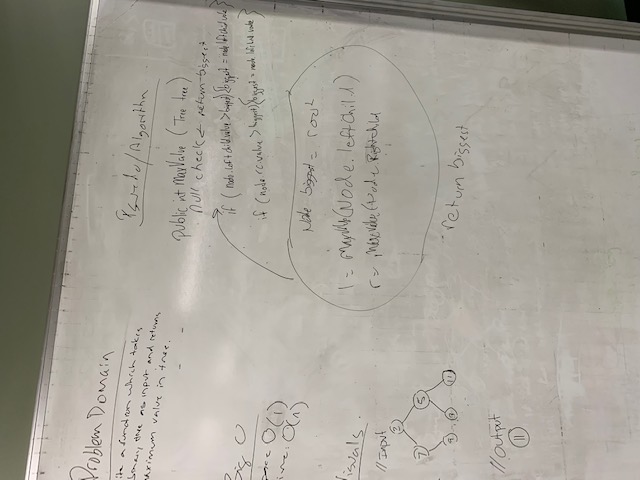 Problem Domain
ite a function which takes
binary tree as input and returns
maximum value in tree.
Big O
space O(1)
time: O(n)
Visuals.
// Input
2
7 5
9 11
// Output
11
Psuedo/Algorithm
public int maxValue (Tree tree)
null check ← return biggest
if (node.leftchild.value > biggest) {biggest = node.leftchild.value}
if (node.rc.value > biggest) {biggest = node
Node biggest = root
l = maxValue(Node.leftChild)
r = maxValue(Node.RightChild
return biggest